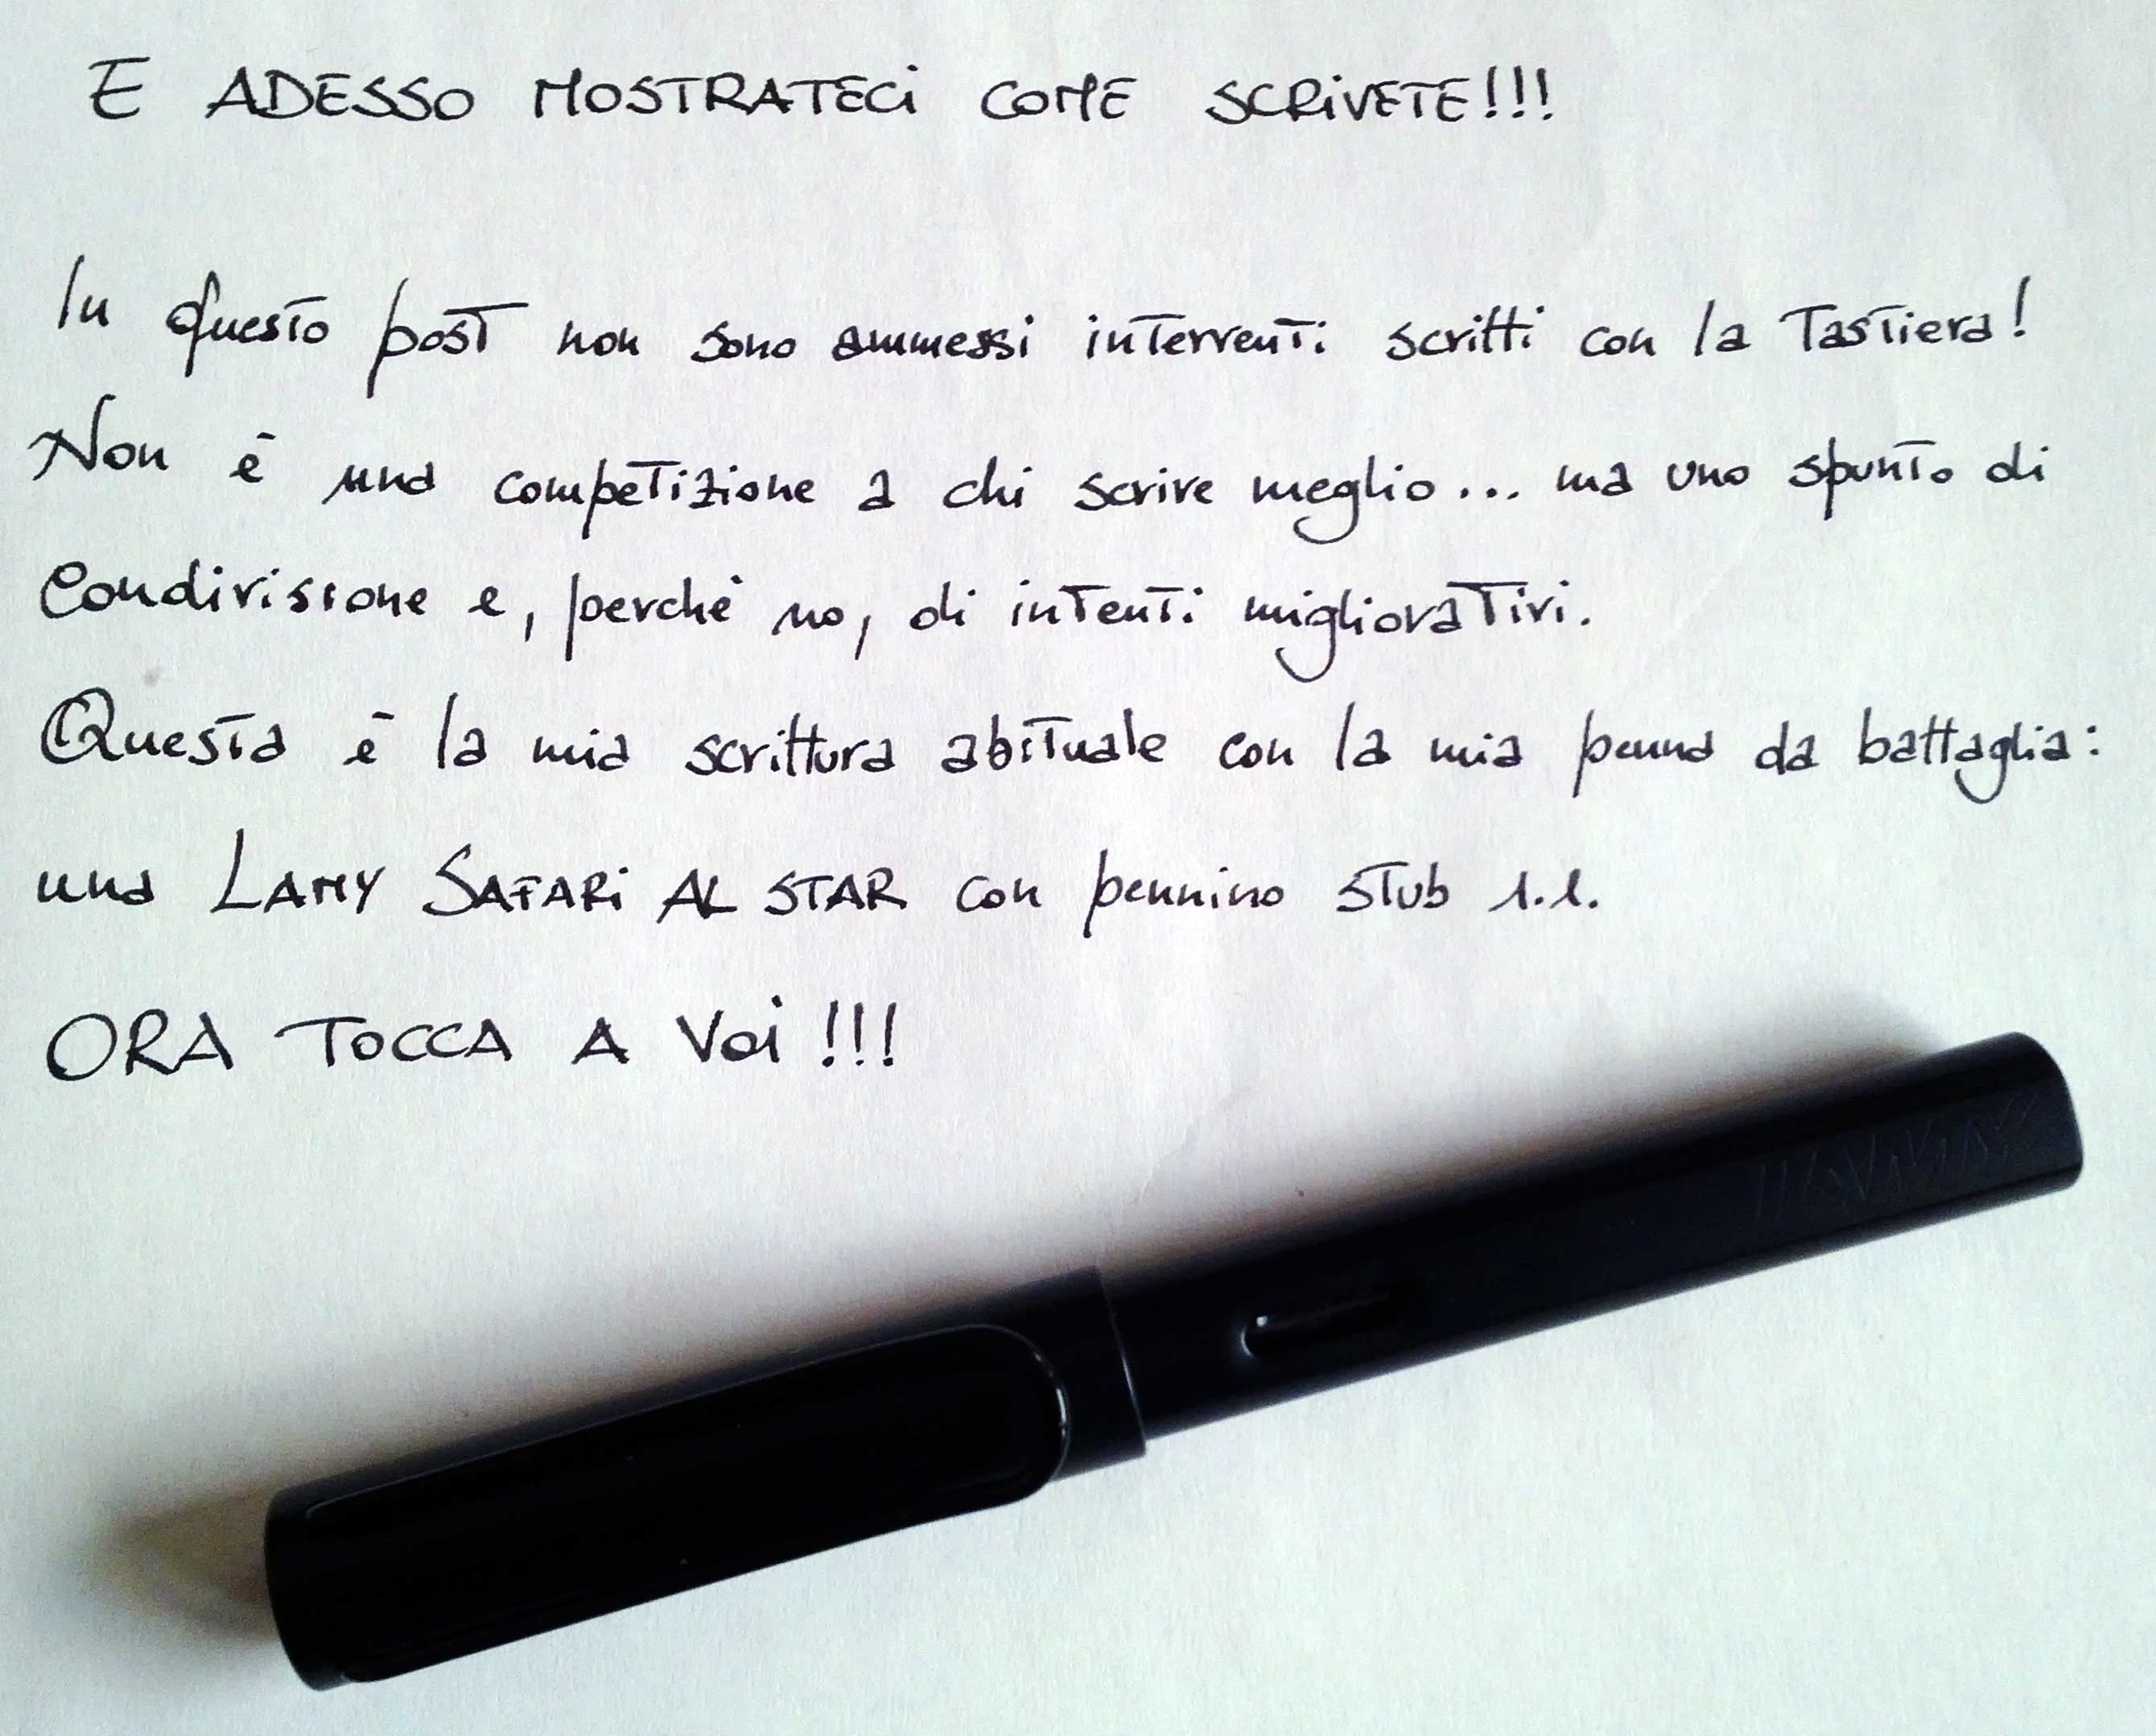 E ADESSO MOSTRATECI COME SCRIVETE!!!
In questo post non sono ammessi interventi scritti con la Tastiera!
Non è una competizione a chi scrive meglio... ma uno spunto di
condivisione e, perchè no, di intenti migliorativi.
Questa è la mia scrittura abituale con la mia penna da battaglia:
una LAMY SAFARI AL STAR con pennino stub 1.1.
ORA TOCCA A Voi!!!
LAMY